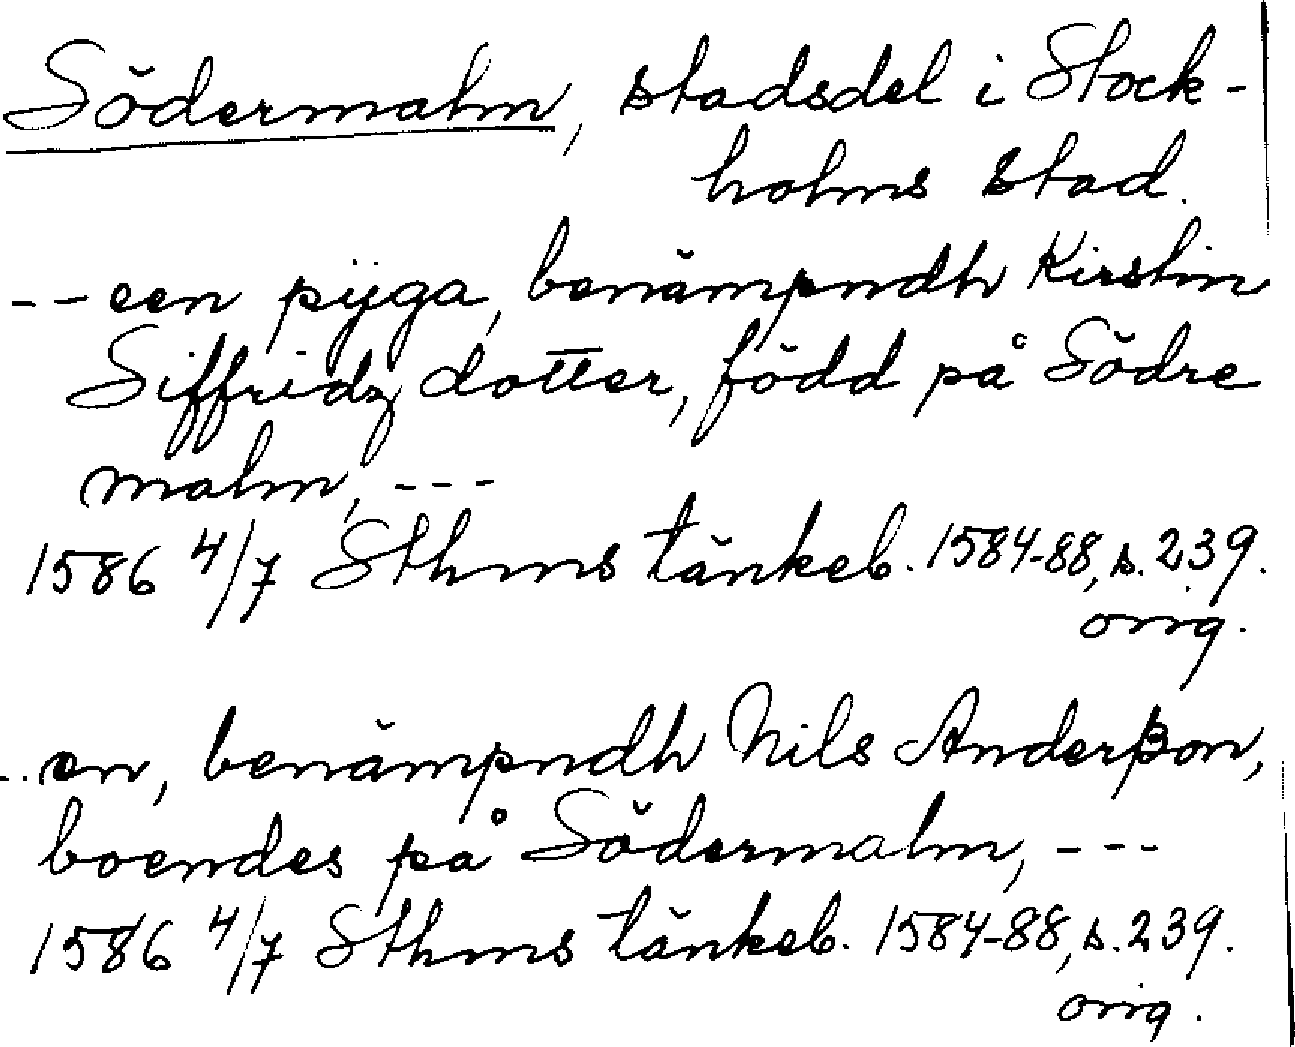 Södermalm, stadsdel i Stock-
holms stad.
-- een pÿga, benämpndh Kirstin
Siffridz dotter, född på Södre
malm, ---
1586 4/7 Sthms tänkeb. 1584-88, s. 239.
orig.
.. en, benämpndh Nils Anderßon,
boendes på Södermalm, ---
1586 4/7 Sthms tänkeb. 1584-88, s. 239.
orig.